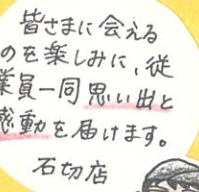 皆さまに会える
のを楽しみに、従
業員一同思い出と
感動を届けます。
石切店